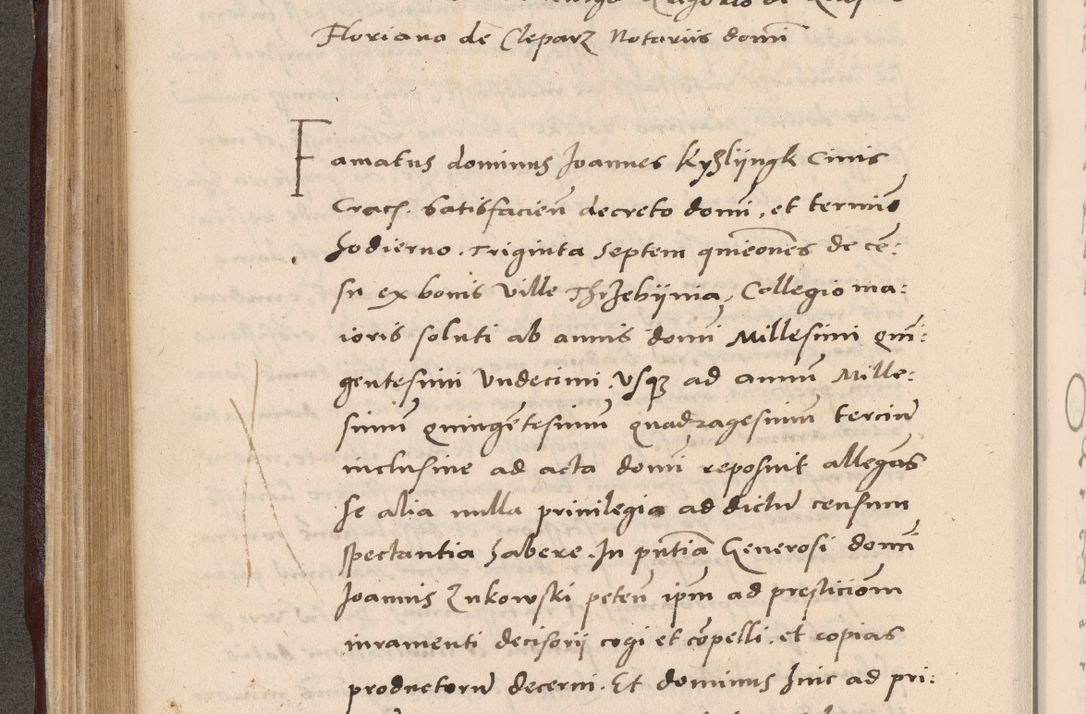 Floriano de Cleparz Notariis domi
Famatus dominus Joannes Kyßlijngk Ciuis
Cracs. satisfacien decreto domi, et termino
hodierno. Triginta septem quieones de cen:
su ex bonis ville Thrzebijnia, Collegio ma:
ioris soluti ab annis domi Millesimi Quin:
gentesimi Vndecimi. Vsq ad annu Mille:
simu quingetesimum quadragesimum terciu
inclusiue ad acta domi reposuit allegas
se alia nulla priuilegia ad dictu censum
spectantia habere. In pntia Generosi domi
Joannis Zukowski peten ipm ad presticiom
iuramenti decisorij cogi et copelli. et copias
productoru decerni. Et dominus huic ad pri: